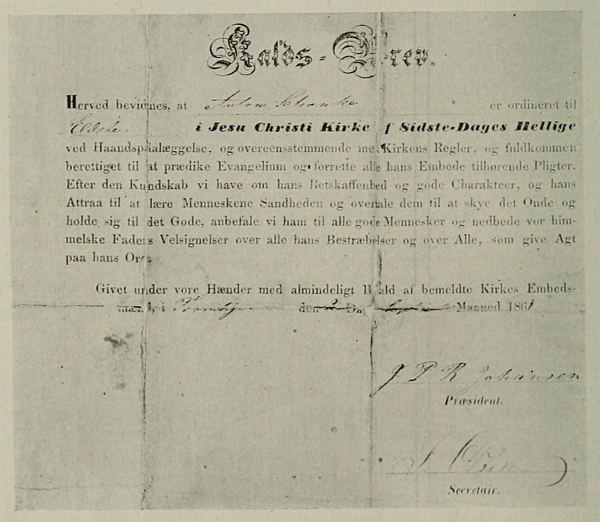 Kalds-Brev.
Herved bevidnes, at Anton Schanke er ordineret til
Eldste i Jesu Christi Kirke af Sidste-Dages Hellige
ved Haandspaalæggelse, og overeensstemmende med Kirkens Regler, og fuldkommen
berettiget til at prædike Evangelium og forrette alle hans Embede tilhørende Pligter.
Efter den Kundskab vi have om hans Retskaffenhed og gode Charakteer, og hans
Attraa til at lære Menneskene Sandheden og overtale dem til at skye det Onde og
holde sig til det Gode, anbefale vi ham til alle gode Mennesker og nedbede vor him-
melske Faders Velsignelser over alle hans Bestræbelser og over Alle, som give Agt
paa hans Ord.
Givet under vore Hænder med almindeligt Bifald af bemeldte Kirkes Embeds-
mænd, i den Maaned 186
J P R Johansen
Præsident.
Olsen
Secretair.